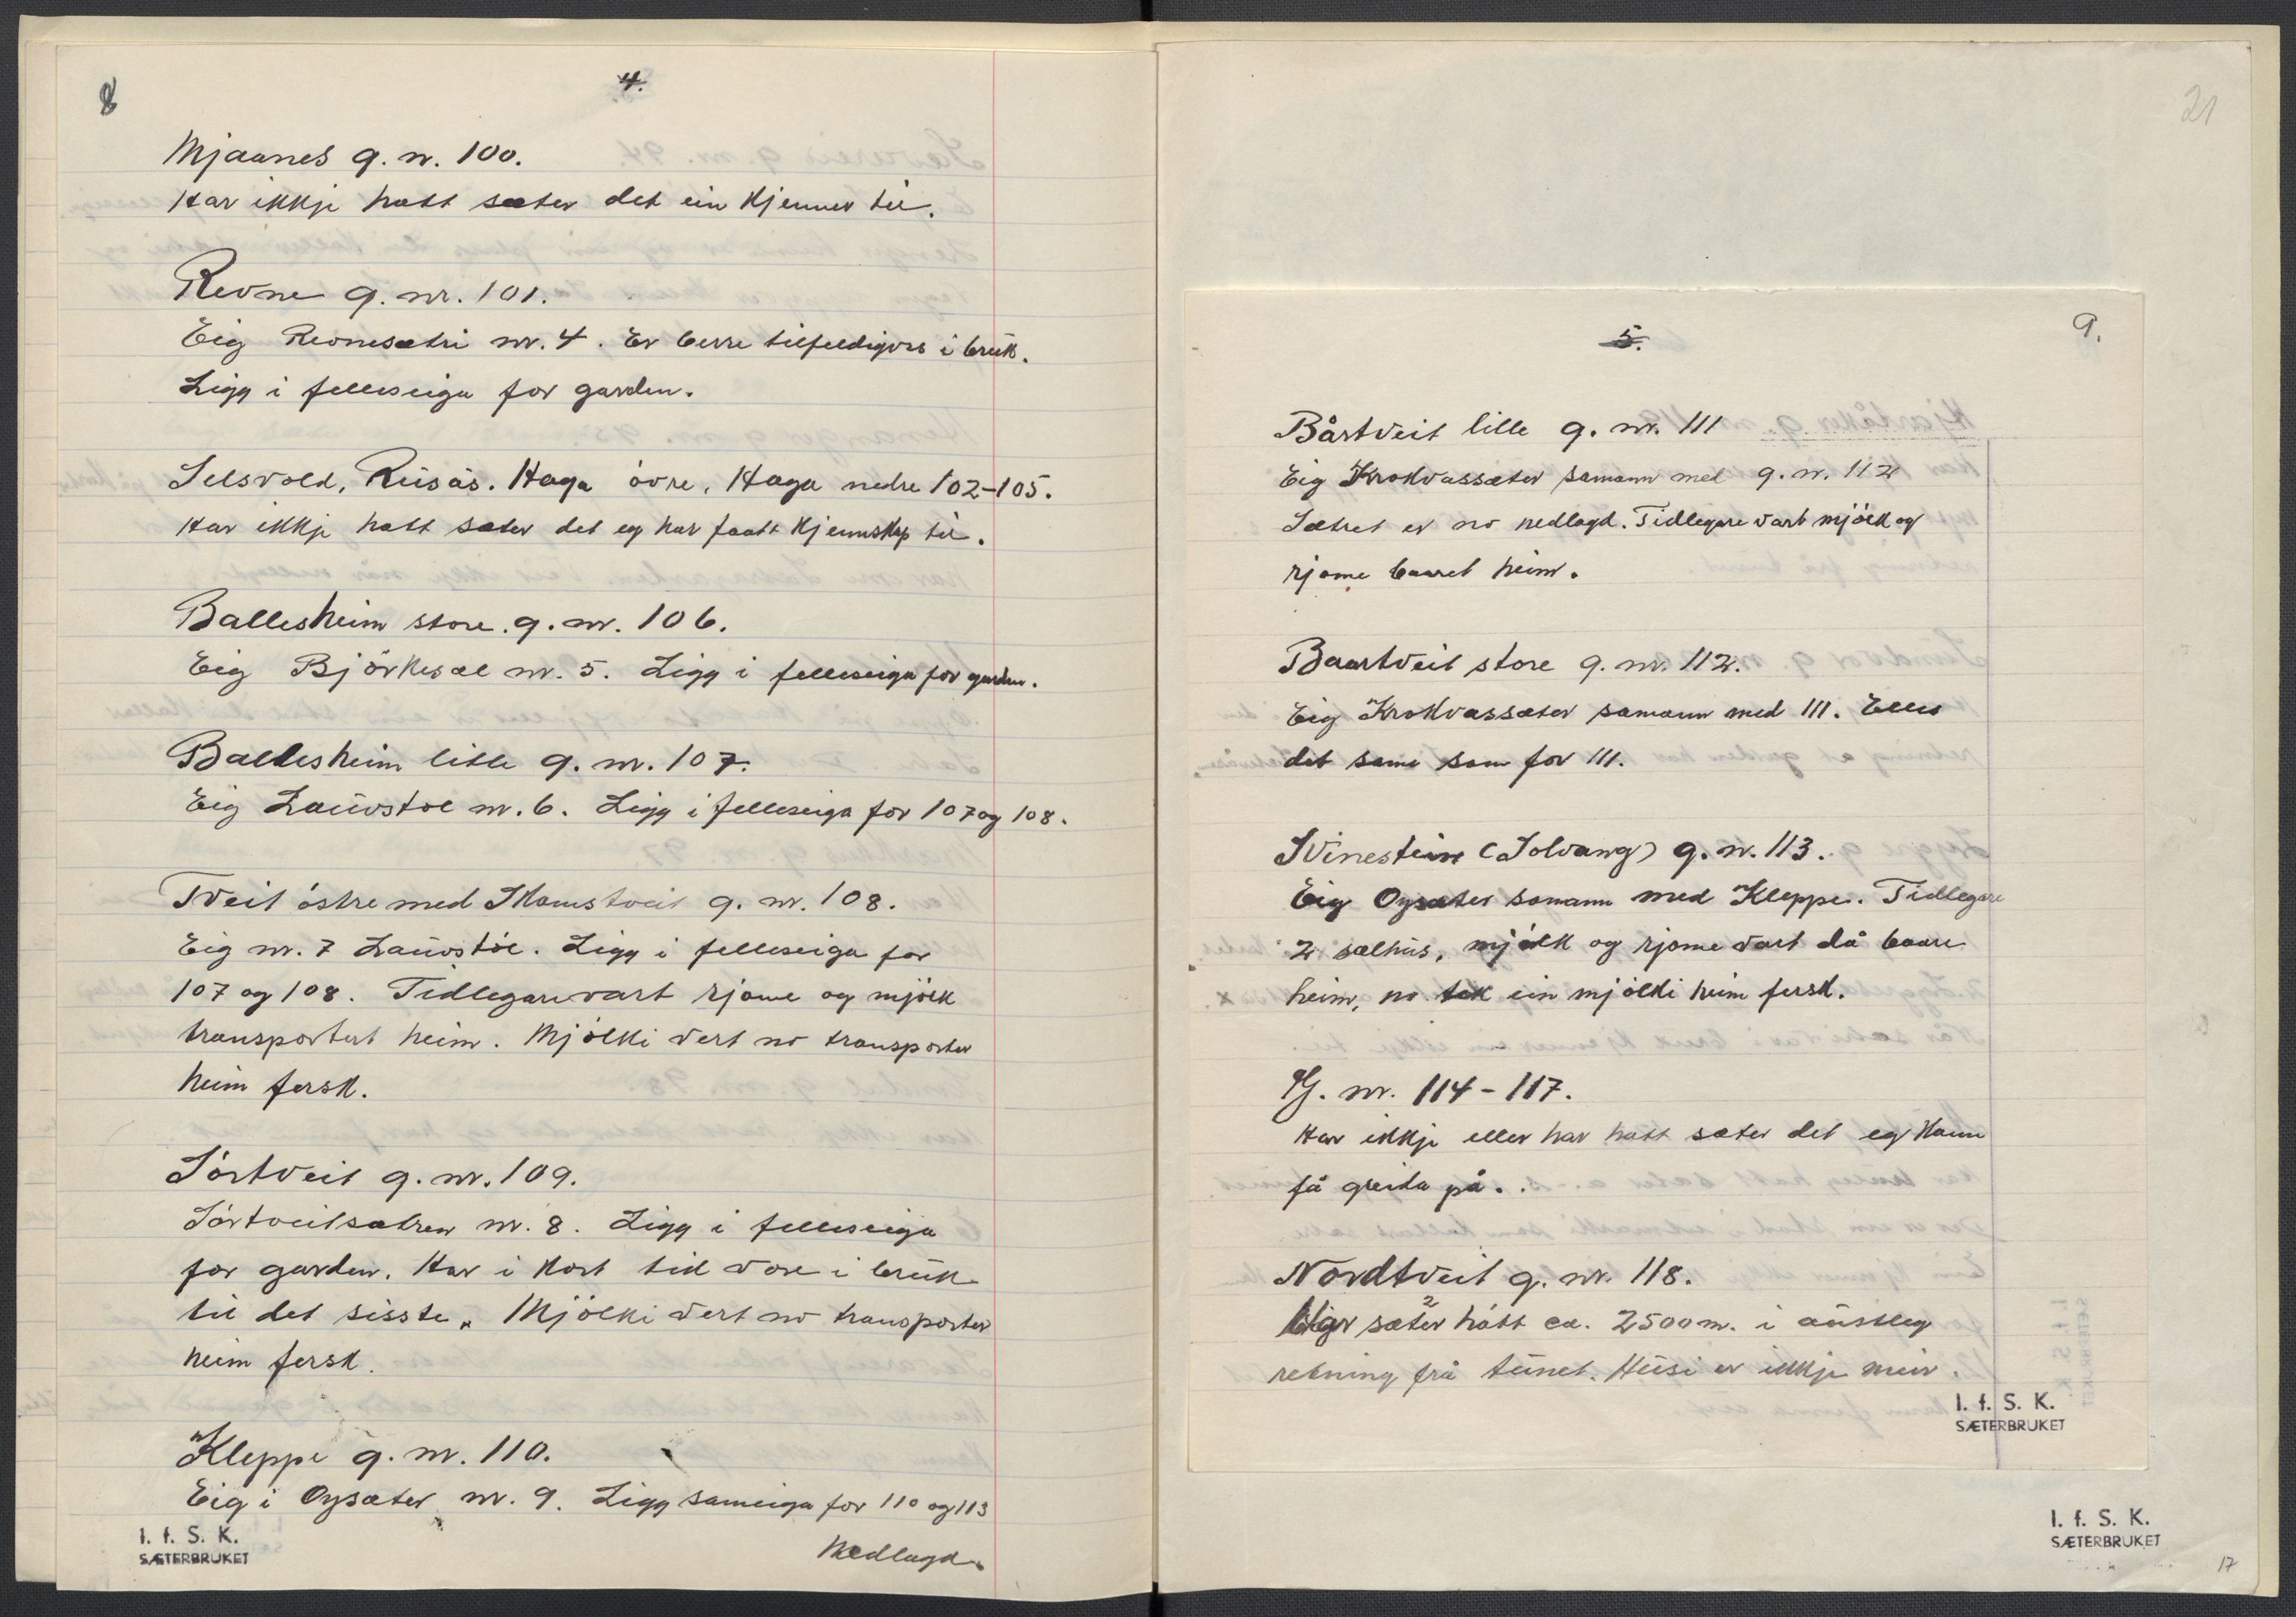 8
4.
Mjaanes g. nr. 100.
Har ikkje hatt sæter det ein kjenner til.
Revne g. nr. 101.
Eig Revnesætri nr. 4. Er berre tilfeldigvis i bruk.
Ligg i felleseiga for garden.
Selsvold, Rusås. Haga övre, Haga nedre 102-105.
Har ikkje hatt sæter det eg har faatt kjennskap til.
Ballesheim store. g. nr. 106.
Eig Björkesæl nr. 5. Ligg i felleseiga for garden.
Ballesheim litle g. nr. 107.
Eig Lauvstöl nr. 6. Ligg i felleseiga for 107 og 108.
Tveit östre med g. nr. 108.
Eig nr. 7 Lauvstöl. Ligg i felleseiga for
107 og 108. Tidlegare vart rjome og mjölk
transportert heim. Mjölki vert no transporter
heim fersk.
Sörtveit g. nr. 109.
Sörtveitsætren nr. 8. Ligg i felleseiga
for garden. Har i kort tid vore i bruk
til det sisste. Mjölki vert no transporter
heim fersk.
Kleppe g. nr. 110.
Eig i Oysæter nr. 9. Ligg sameiga for 110 og 113
Nedlagd.
I. f. S. K.
SÆTERBRUKET
21
5.
9.
Båstveit lille g. nr. 111
Eig Krokvassæter samann med g. nr. 112
Sætret er no nedlagd. Tidlegare vart mjölk og
rjome baaret heim.
Baartveit store g. nr. 112.
Eig Krokvassæter samann med 111. Elles
det same som for 111.
Svinestein (Solvang) g. nr. 113.
Eig Oysæter samann med Kleppe. Tidlegare
2 sælhus, mjölk og rjome vart då baare
heim, no tek ein mjölki heim fersk.
G. nr. 114-117.
Har ikkje eller har hatt sæter det eg kann
få greida på.
Nordtveit g. nr. 118.
Har sæter hått ca. 2500 m. i austleg
retning frå tunet. Husi er ikkje meir.
I. f. S. K.
SÆTERBRUKET
I. f. S. K.
SÆTERBRUKET
17